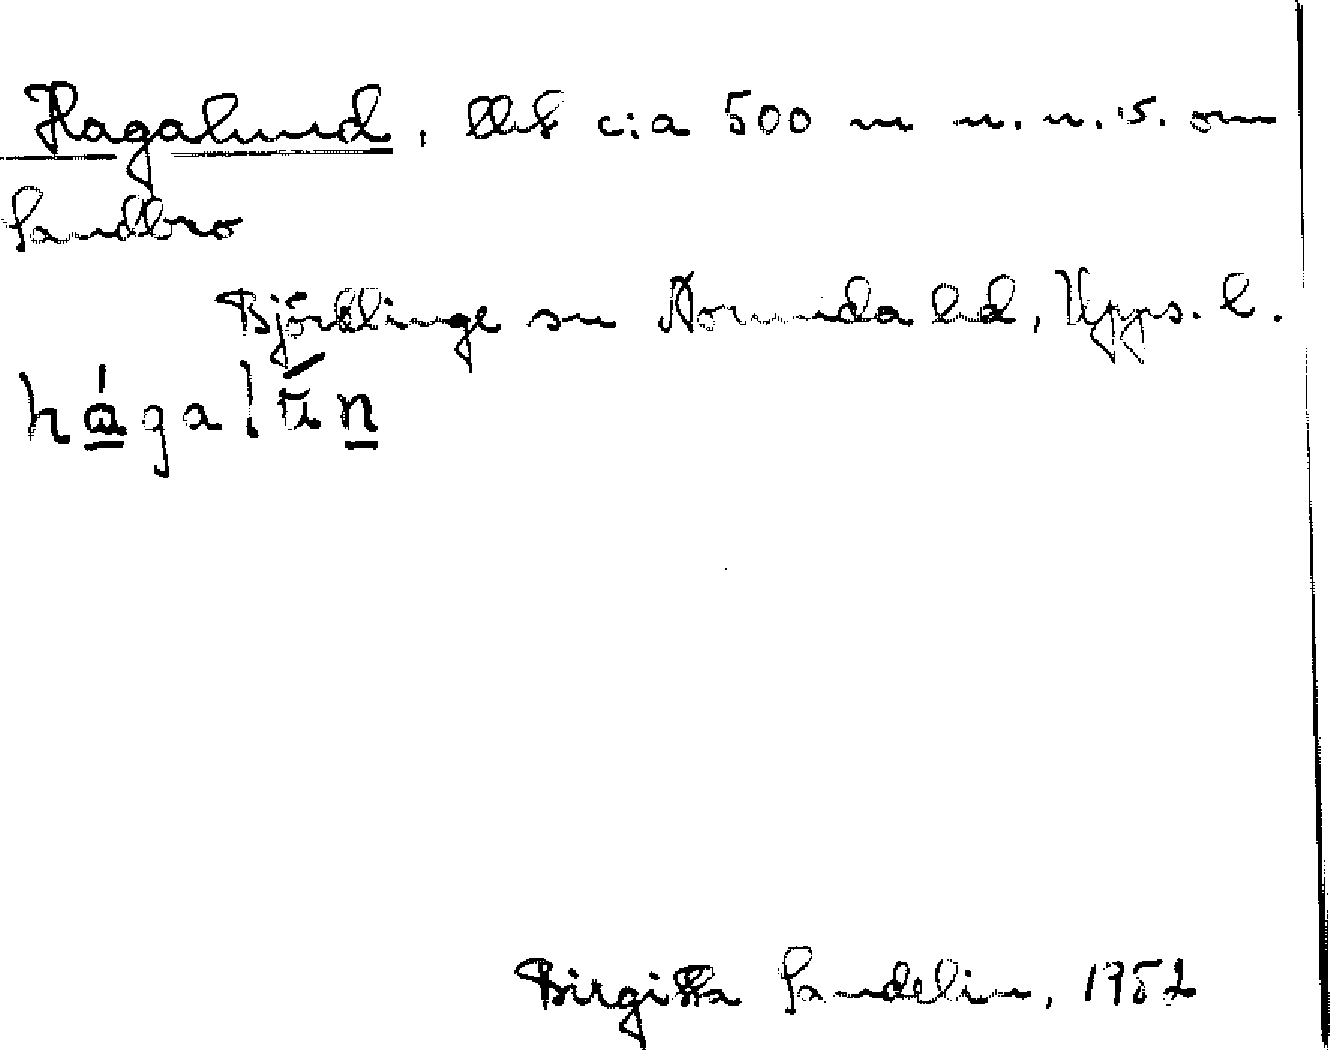 Hagalund, lht c:a 500 m n.n.ö. om
Sandbro
Björklinge sn Norunda hd, Upps. l.
hágalūn
Birgitta Sandelin, 1952